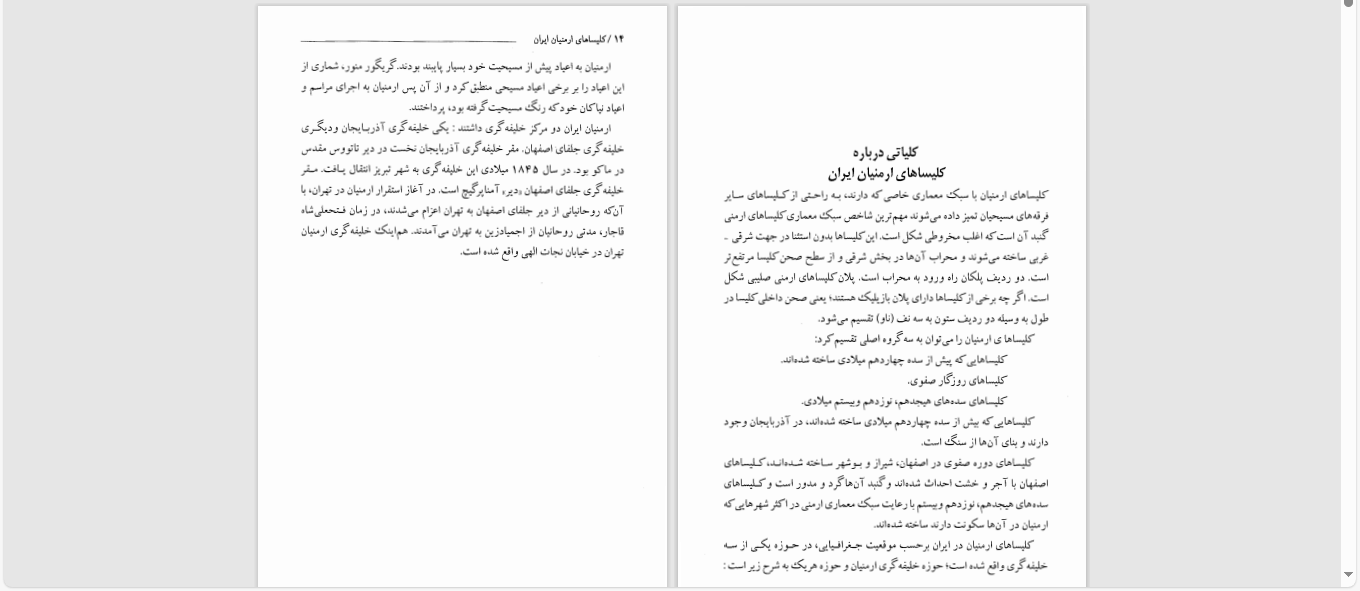 کلیاتی درباره
کلیساهای ارمنیان ایران
کلیساهای ارمنیان با سبک معماری خاصی که دارند، به راحتی از کلیساهای سایر
فرقه‌های مسیحیان تمیز داده می‌شوند مهم‌ترین شاخص سبک معماری کلیساهای ارمنی
گنبد آن است که اغلب مخروطی شکل است. این کلیساها بدون استثنا در جهت شرقی -
غربی ساخته می‌شوند و محراب آن‌ها در بخش شرقی و از سطح صحن کلیسا مرتفع‌تر
است. دو ردیف پلکان راه ورود به محراب است. پلان کلیساهای ارمنی صلیبی شکل
است. اگر چه برخی از کلیساها دارای پلان بازیلیک هستند؛ یعنی صحن داخلی کلیسا در
طول به وسیله دو ردیف ستون به سه نف (ناو) تقسیم می‌شود.
کلیساها ی ارمنیان را می‌توان به سه گروه اصلی تقسیم کرد:
کلیساهایی که پیش از سده چهاردهم میلادی ساخته شده‌اند.
کلیساهای روزگار صفوی.
کلیساهای سده‌های هیجدهم، نوزدهم وبیستم میلادی.
کلیساهایی که بیش از سده چهاردهم میلادی ساخته شده‌اند، در آذربایجان وجود
دارند و بنای آن‌ها از سنگ است.
کلیساهای دوره صفوی در اصفهان، شیراز و بوشهر ساخته شده‌اند، کلیساهای
اصفهان با آجر و خشت احداث شده‌اند و گنبد آن‌ها گرد و مدور است و کلیساهای
سده‌های هیجدهم، نوزدهم وبیستم با رعایت سبک معماری ارمنی در اکثر شهرهایی که
ارمنیان در آن‌ها سکونت دارند ساخته شده‌اند.
کلیساهای ارمنیان در ایران برحسب موقعیت جغرافیایی، در حوزه یکی از سه
خلیفه گری واقع شده است؛ حوزه خلیفه گری ارمنیان و حوزه هریک به شرح زیر است :
۱۴ / کلیساهای ارمنیان ایران
ارمنیان به اعیاد پیش از مسیحیت خود بسیار پایبند بودند. گریگور منور، شماری از
این اعیاد را بر برخی اعیاد مسیحی منطبق کرد و از آن پس ارمنیان به اجرای مراسم و
اعیاد نیاکان خود که رنگ مسیحیت گرفته بود، پرداختند.
ارمنیان ایران دو مرکز خلیفه گری داشتند : یکی خلیفه گری آذربایجان ودیگری
خلیفه گری جلفای اصفهان. مقر خلیفه گری آذربایجان نخست در دیر تاتووس مقدس
در ماکو بود. در سال ۱۸۴۵ میلادی این خلیفه گری به شهر تبریز انتقال یافت. مقر
خلیفه گری جلفای اصفهان «دیر» آمناپرگیچ است. در آغاز استقرار ارمنیان در تهران، با
آن‌که روحانیانی از دیر جلفای اصفهان به تهران اعزام می‌شدند، در زمان فتحعلی‌شاه
قاجار، مدتی روحانیان از اجمیادزین به تهران می‌آمدند. هم‌اینک خلیفه گری ارمنیان
تهران در خیابان نجات الهی واقع شده است.